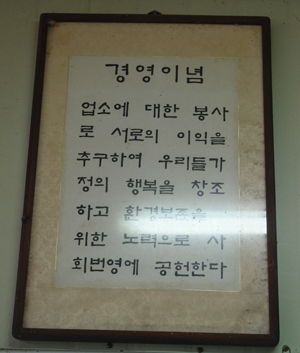 경영이념
업소에 대한 봉사
로 서로의 이익을
추구하여 우리들가
정의 행복을 창조
하고 환경보존을
위한 노력으로 사
회번영에 공헌한다